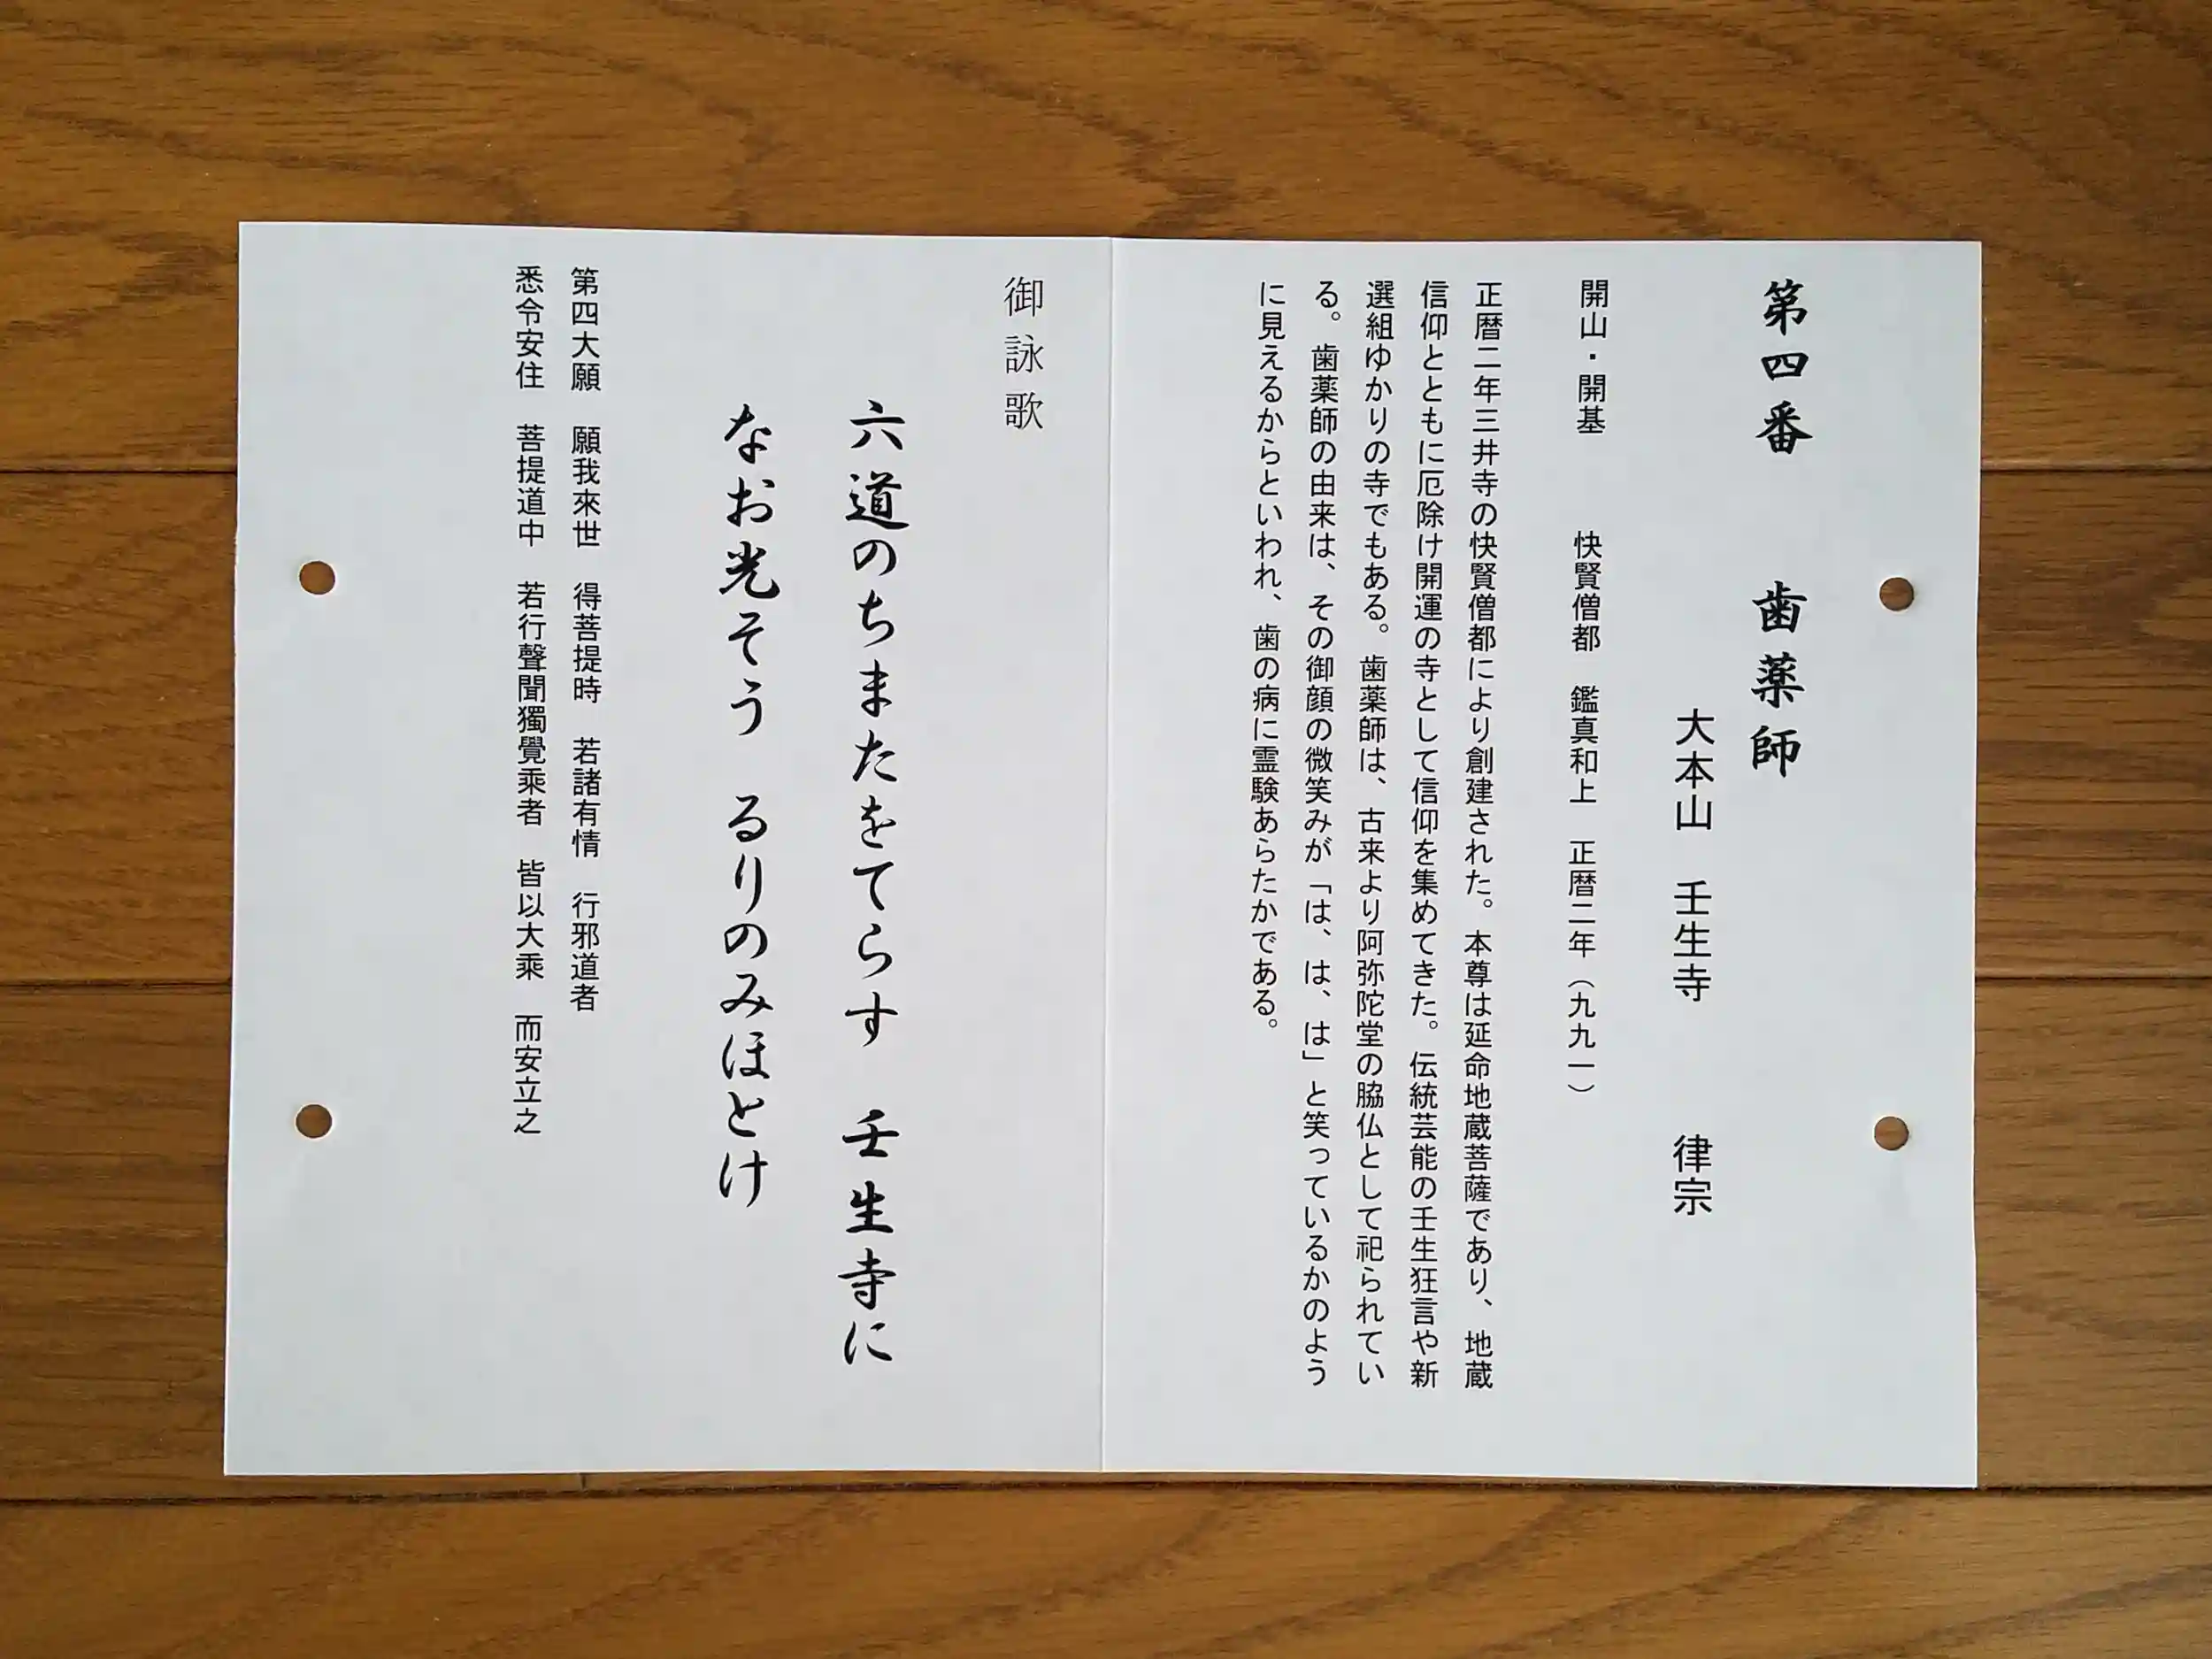 第四番　歯薬師
大本山　壬生寺　　律宗
開山・開基　　快賢僧都　鑑真和上　正暦二年（九九一）
正暦二年三井寺の快賢僧都により創建された。本尊は延命地蔵菩薩であり、地蔵
信仰とともに厄除け開運の寺として信仰を集めてきた。伝統芸能の壬生狂言や新
選組ゆかりの寺でもある。歯薬師は、古来より阿弥陀堂の脇仏として祀られてい
る。歯薬師の由来は、その御顔の微笑みが「は、は、は」と笑っているかのよう
に見えるからといわれ、歯の病に霊験あらたかである。
御詠歌
六道のちまたをてらす　壬生寺に
なお光そう　るりのみほとけ
第四大願　願我來世　得菩提時　若諸有情　行邪道者
悉令安住　菩提道中　若行聲聞獨覺乘者　皆以大乘　而安立之